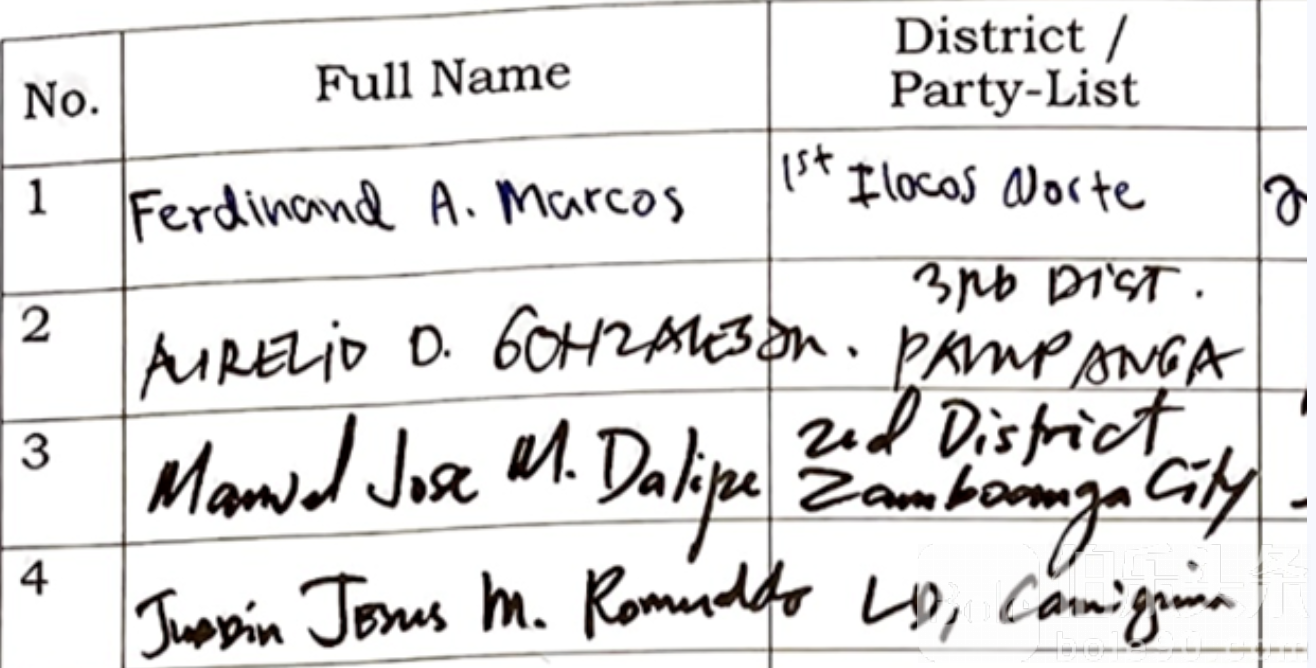 No. Full Name District / Party-List
1 Ferdinand A. Marcos 1st Ilocos Norte
2 AURELIO D. GONZALES Jr. 3RD DIST. PAMPANGA
3 Manuel Jose M. Dalipe 2nd District Zamboanga City
4 Jurdin Jesus M. Romualdo LD, Camiguin
bole90.com